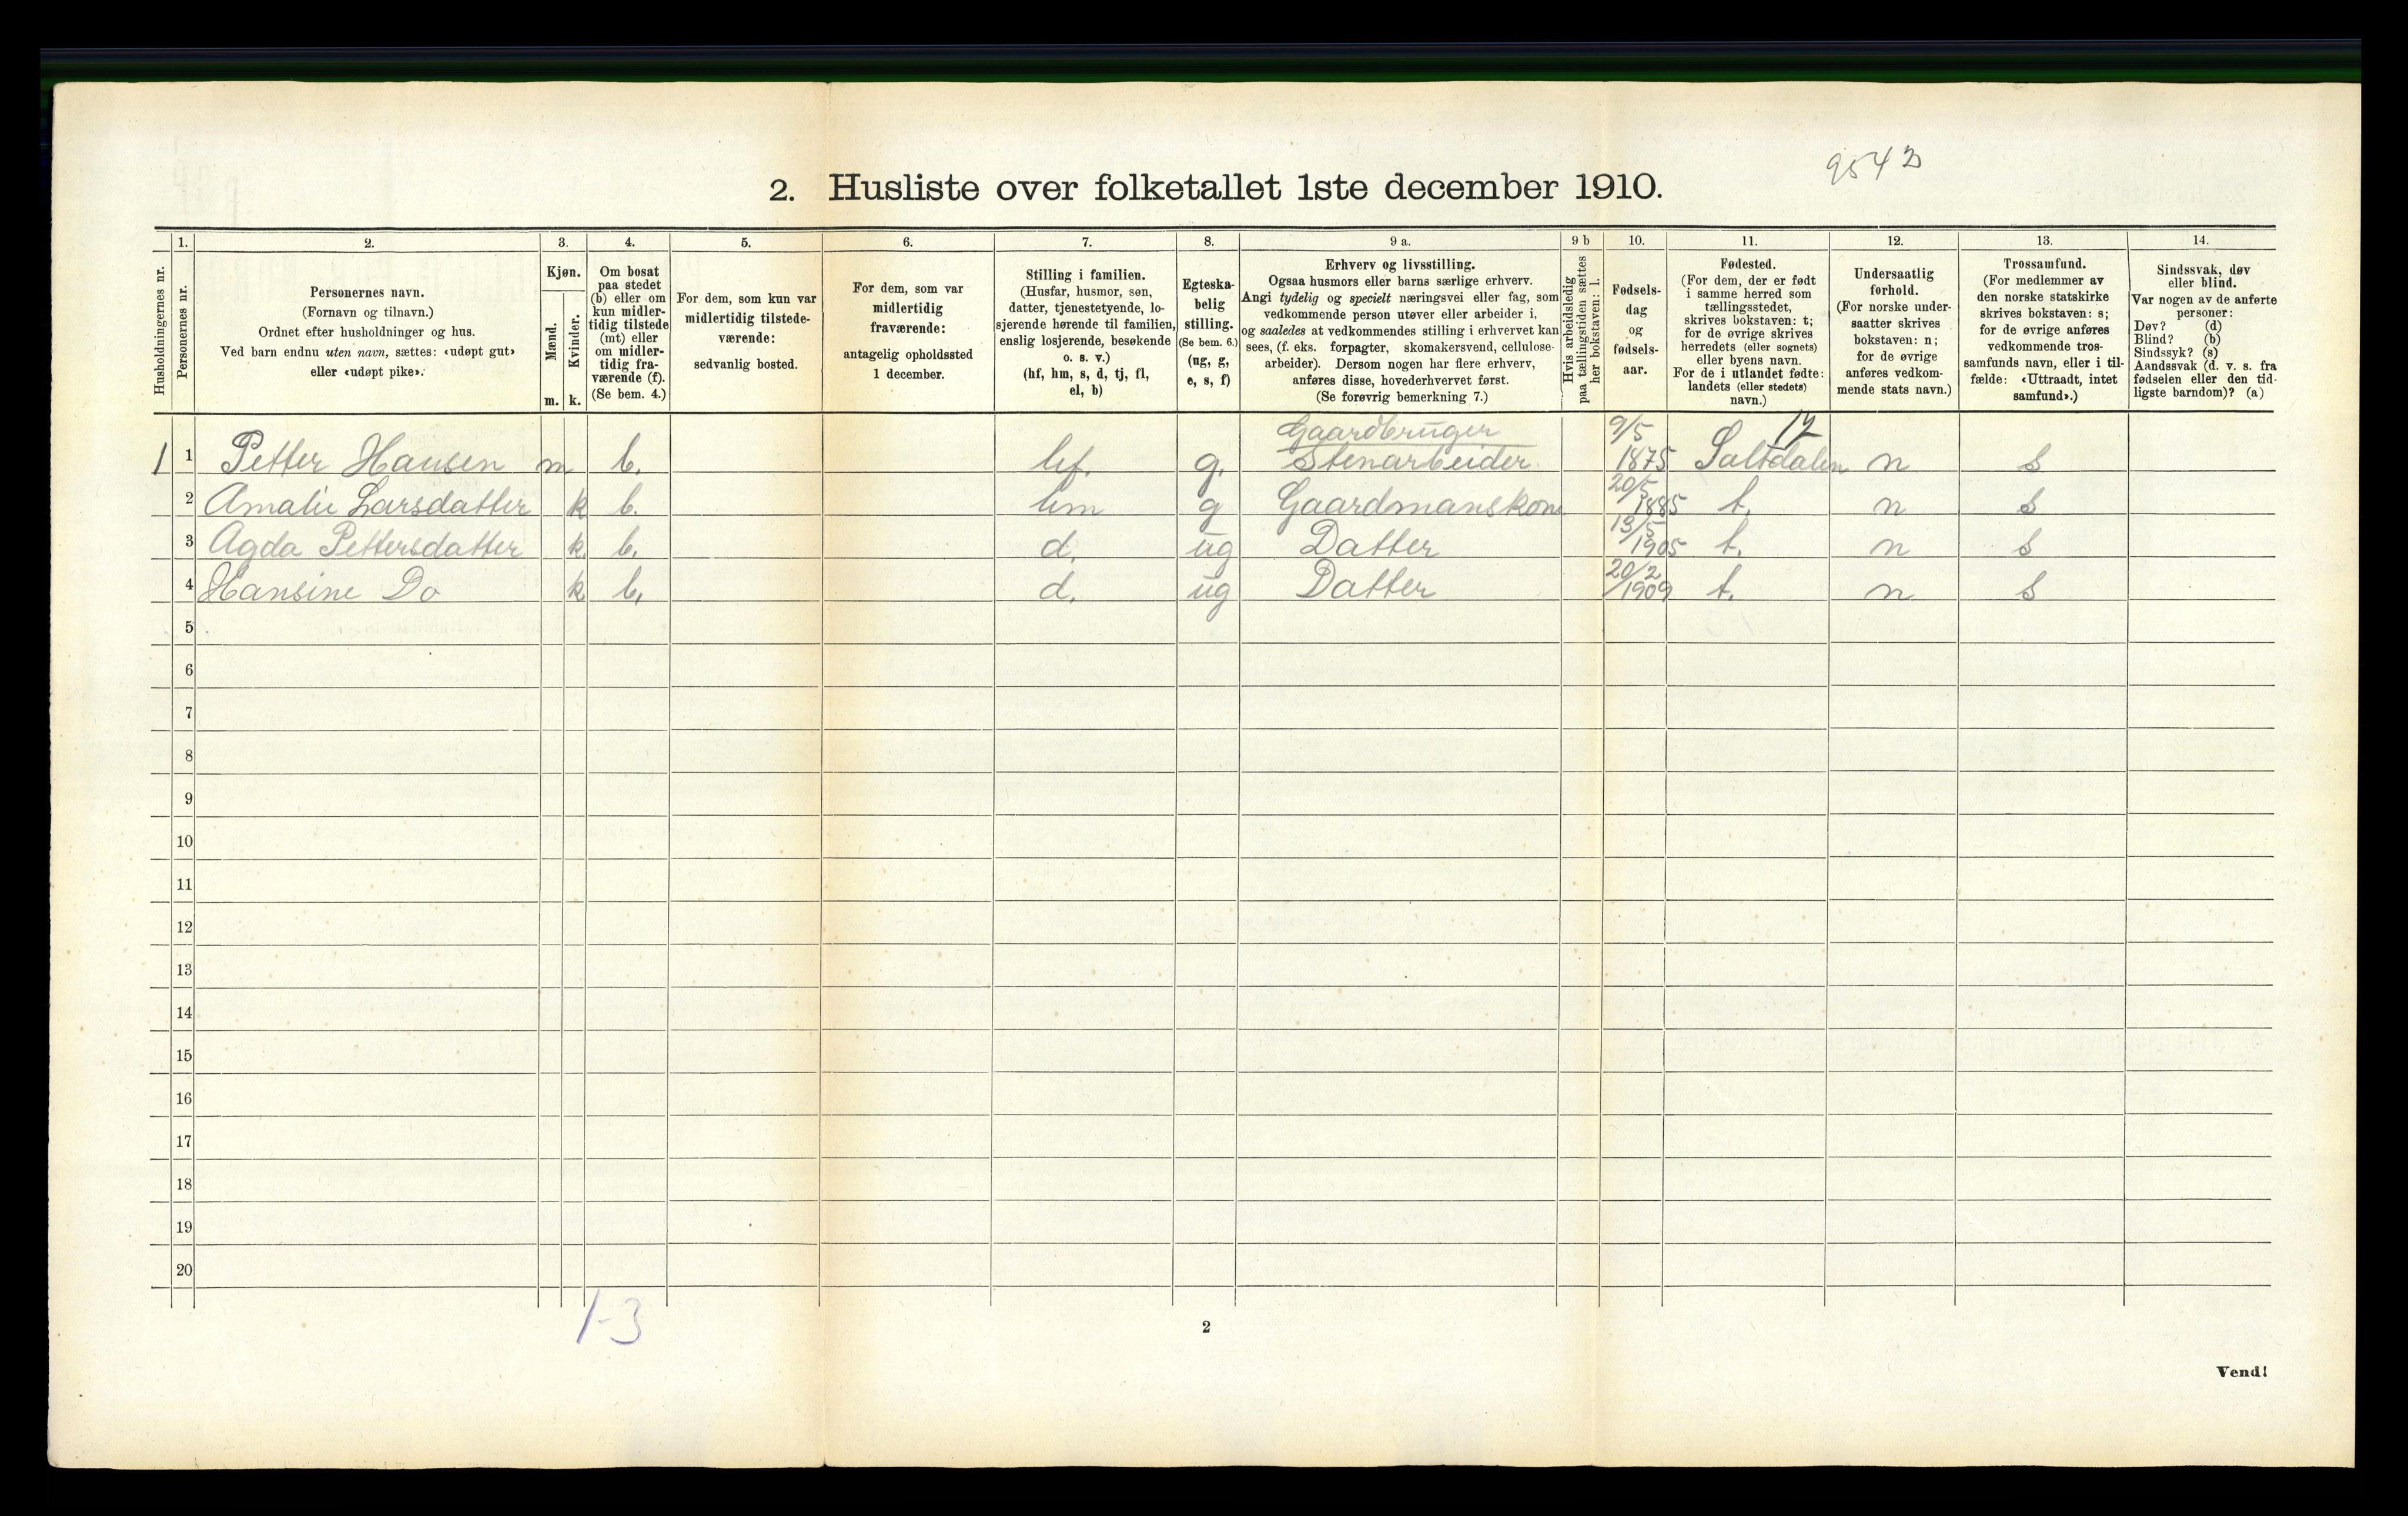 9542
2. Husliste over folketallet 1ste december 1910.
Husholdningernes nr.
1.
Personernes nr.
2.
Personernes navn.
(Fornavn og tilnavn.)
Ordnet efter husholdninger og hus.
Ved barn endnu uten navn, sættes: «udøpt gut»
eller «udøpt pike».
3.
Kjøn.
Mænd.
Kvinder.
m. k.
4.
Om bosat
paa stedet
(b) eller om
kun midler-
tidig tilstede
(mt) eller
om midler-
tidig fra-
værende (f).
(Se bem. 4.)
5.
For dem, som kun var
midlertidig tilstede-
værende:
sedvanlig bosted.
6.
For dem, som var
midlertidig
fraværende:
antagelig opholdssted
1 december.
7.
Stilling i familien.
(Husfar, husmor, søn,
datter, tjenestetyende, lo-
sjerende hørende til familien,
enslig losjerende, besøkende
o. s. v.)
(hf, hm, s, d, tj, fl,
el, b)
8.
Egteska-
belig
stilling.
(Se bem. 6.)
(ug, g,
e, s, f)
9 a.
Erhverv og livsstilling.
Ogsaa husmors eller barns særlige erhverv.
Angi tydelig og specielt næringsvei eller fag, som
vedkommende person utøver eller arbeider i,
og saaledes at vedkommendes stilling i erhvervet kan
sees, (f. eks. forpagter, skomakersvend, cellulose-
arbeider). Dersom nogen har flere erhverv,
anføres disse, hovederhvervet først.
(Se forøvrig bemerkning 7.)
9 b
Hvis arbeidsledig
paa tællingstiden sættes
her bokstaven: l.
10.
Fødsels-
dag
og
fødsels-
aar.
11.
Fødested.
(For dem, der er født
i samme herred som
tællingsstedet,
skrives bokstaven: t;
for de øvrige skrives
herredets (eller sognets)
eller byens navn.
For de i utlandet fødte:
landets (eller stedets)
navn.)
12.
Undersaatlig
forhold.
(For norske under-
saatter skrives
bokstaven: n;
for de øvrige
anføres vedkom-
mende stats navn.)
13.
Trossamfund.
(For medlemmer av
den norske statskirke
skrives bokstaven: s;
for de øvrige anføres
vedkommende tros-
samfunds navn, eller i til-
fælde: «Uttraadt, intet
samfund».)
14.
Sindssvak, døv
eller blind.
Var nogen av de anførte
personer:
Døv? (d)
Blind? (b)
Sindssyk? (s)
Aandssvak (d. v. s. fra
fødselen eller den tid-
ligste barndom)? (a)
Gaardbruger 9/5
1 1 Petter Hansen m b. hf. g. Stenarbeider 1875 Saltdalen n s
2 Amalie Larsdatter k b. hm g Gaardmanskone 20/5 1885 t. n s
3 Agda Pettersdatter k b. d. ug Datter 13/5 1905 t. n s
4 Hansine Do k b. d. ug Datter 20/2 1909 t. n s
5
6
7
8
9
10
11
12
13
14
15
16
17
18
19
20
1-3
2
Vend!